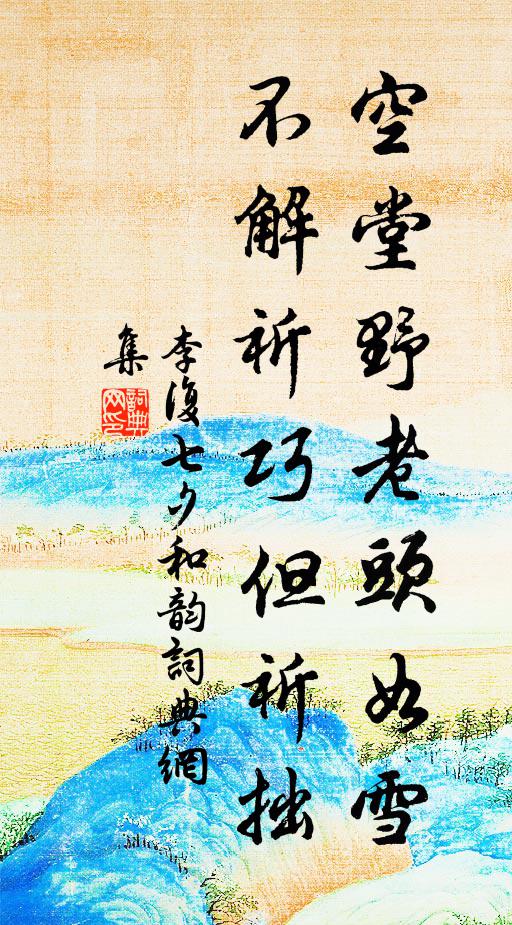 空堂野老頭如雪
不解祈巧但祈拙
李復七夕和韵詞典網
集
詞典
网印